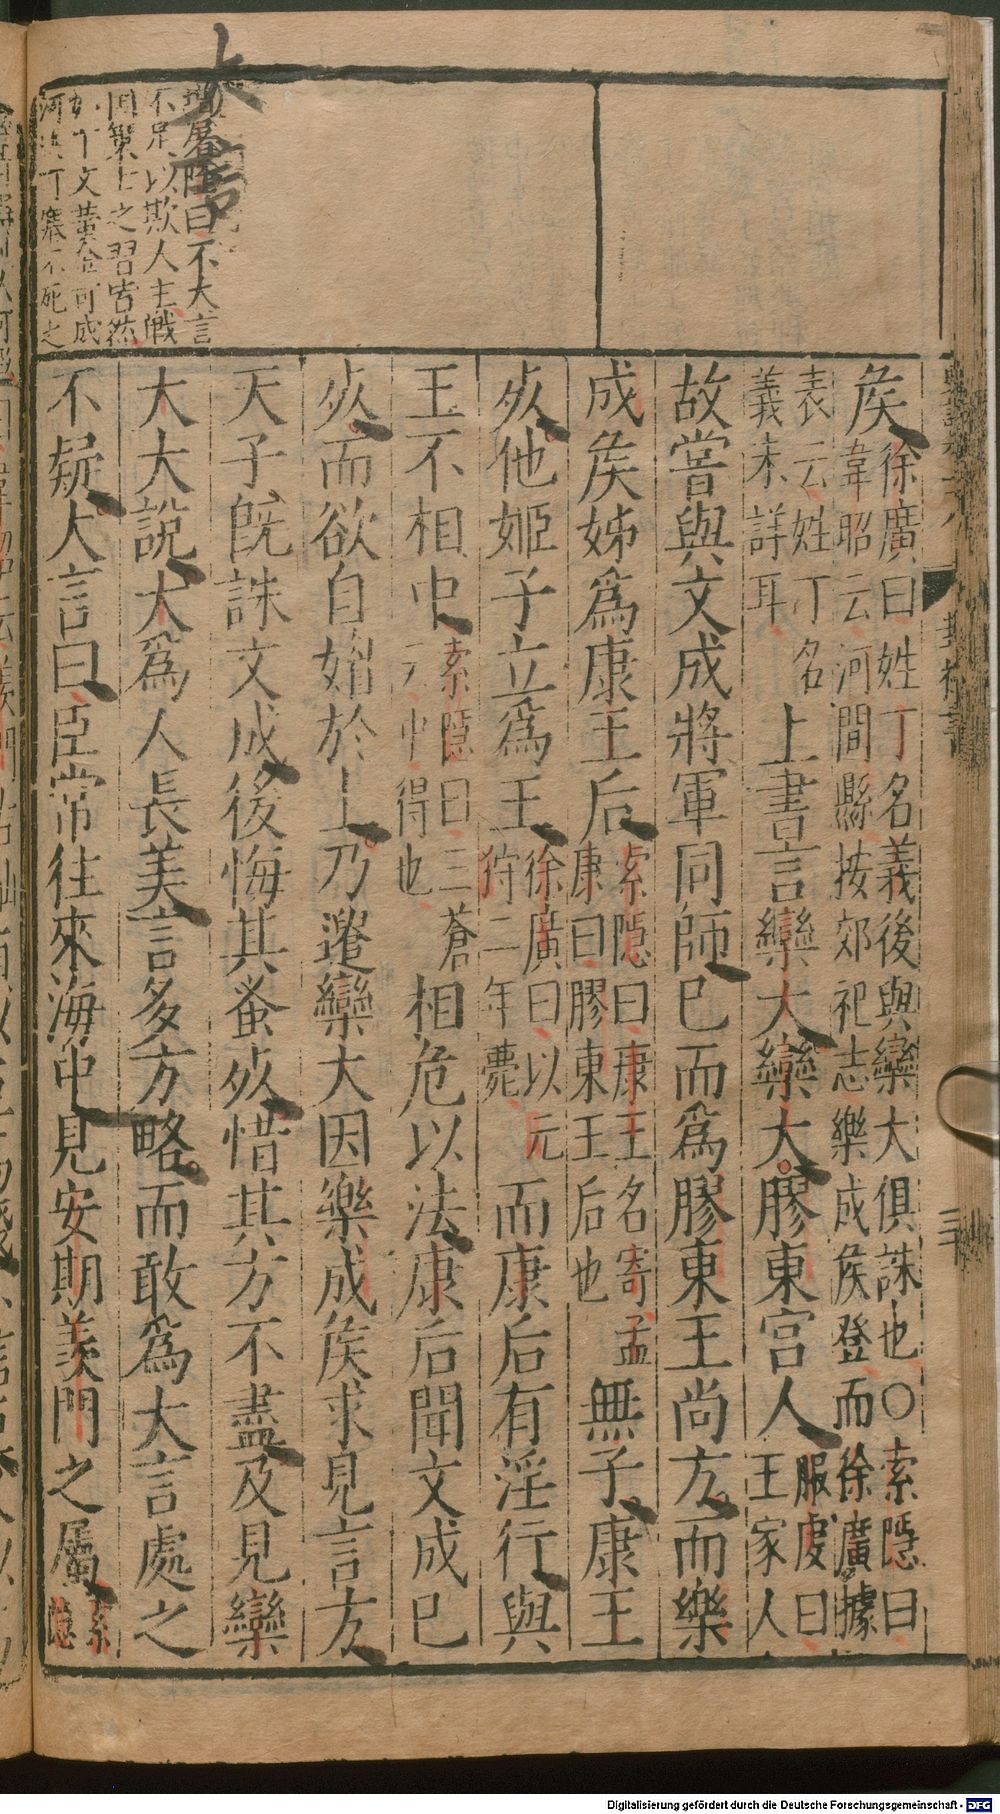 大言
增屠隆曰不大言
不足以欺人主戰
國策士之習皆然
如下文黃金可成
河決可塞不死之
矦徐廣曰姓丁名義後與欒大俱誅也○索隱曰
韋昭云河間縣按郊祀志樂成矦登而徐廣據
表云姓丁名
義未詳耳
上書言欒大欒大膠東宮人服虔曰
王家人
故嘗與文成將軍同師已而爲膠東王尚方而樂
成矦姊爲康王后索隱曰康王名寄孟
康曰膠東王后也
無子康王
死他姬子立爲王徐廣曰以元
狩二年薨
而康后有淫行與
王不相中索隱曰三蒼
云中得也
相危以法康后聞文成已
死而欲自媚於上乃遣欒大因樂成矦求見言方
天子旣誅文成後悔其蚤死惜其方不盡及見欒
大大說大爲人長美言多方略而敢爲大言處之
不疑大言曰臣常往來海中見安期羨門之屬索
隱
封禪書
三十
Digitalisierung gefördert durch die Deutsche Forschungsgemeinschaft - DFG